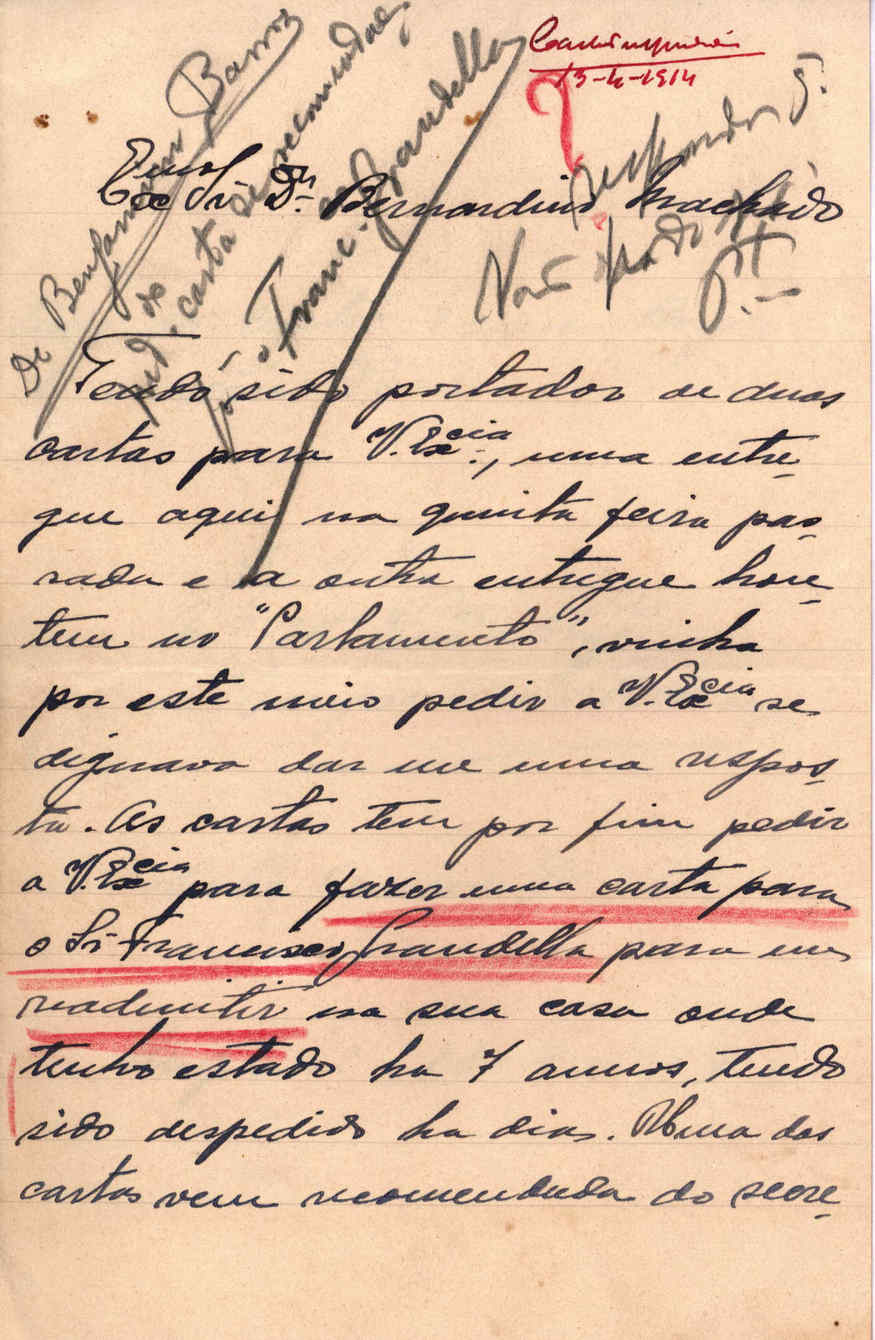 13-4-1914
De Benjamim Barros
ped. do carta de recomendação
Franc. Grandella
Responder
Exmo Sr. Dr. Bernardino Machado
Tendo sido portador de duas
cartas para V. Excia., uma entre-
gue aqui na quinta feira pas-
sada e a outra entregue hon-
tem no "Parlamento", vinha
por este meio pedir a V. Excia se
dignava dar me uma respos-
ta. As cartas tem por fim pedir
a V. Excia para fazer uma carta para
o Sr Francisco Grandella para me
readmitir na sua casa onde
tenho estado ha 7 annos, tendo
sido despedido ha dias. Uma das
cartas vem recomendada do secre-